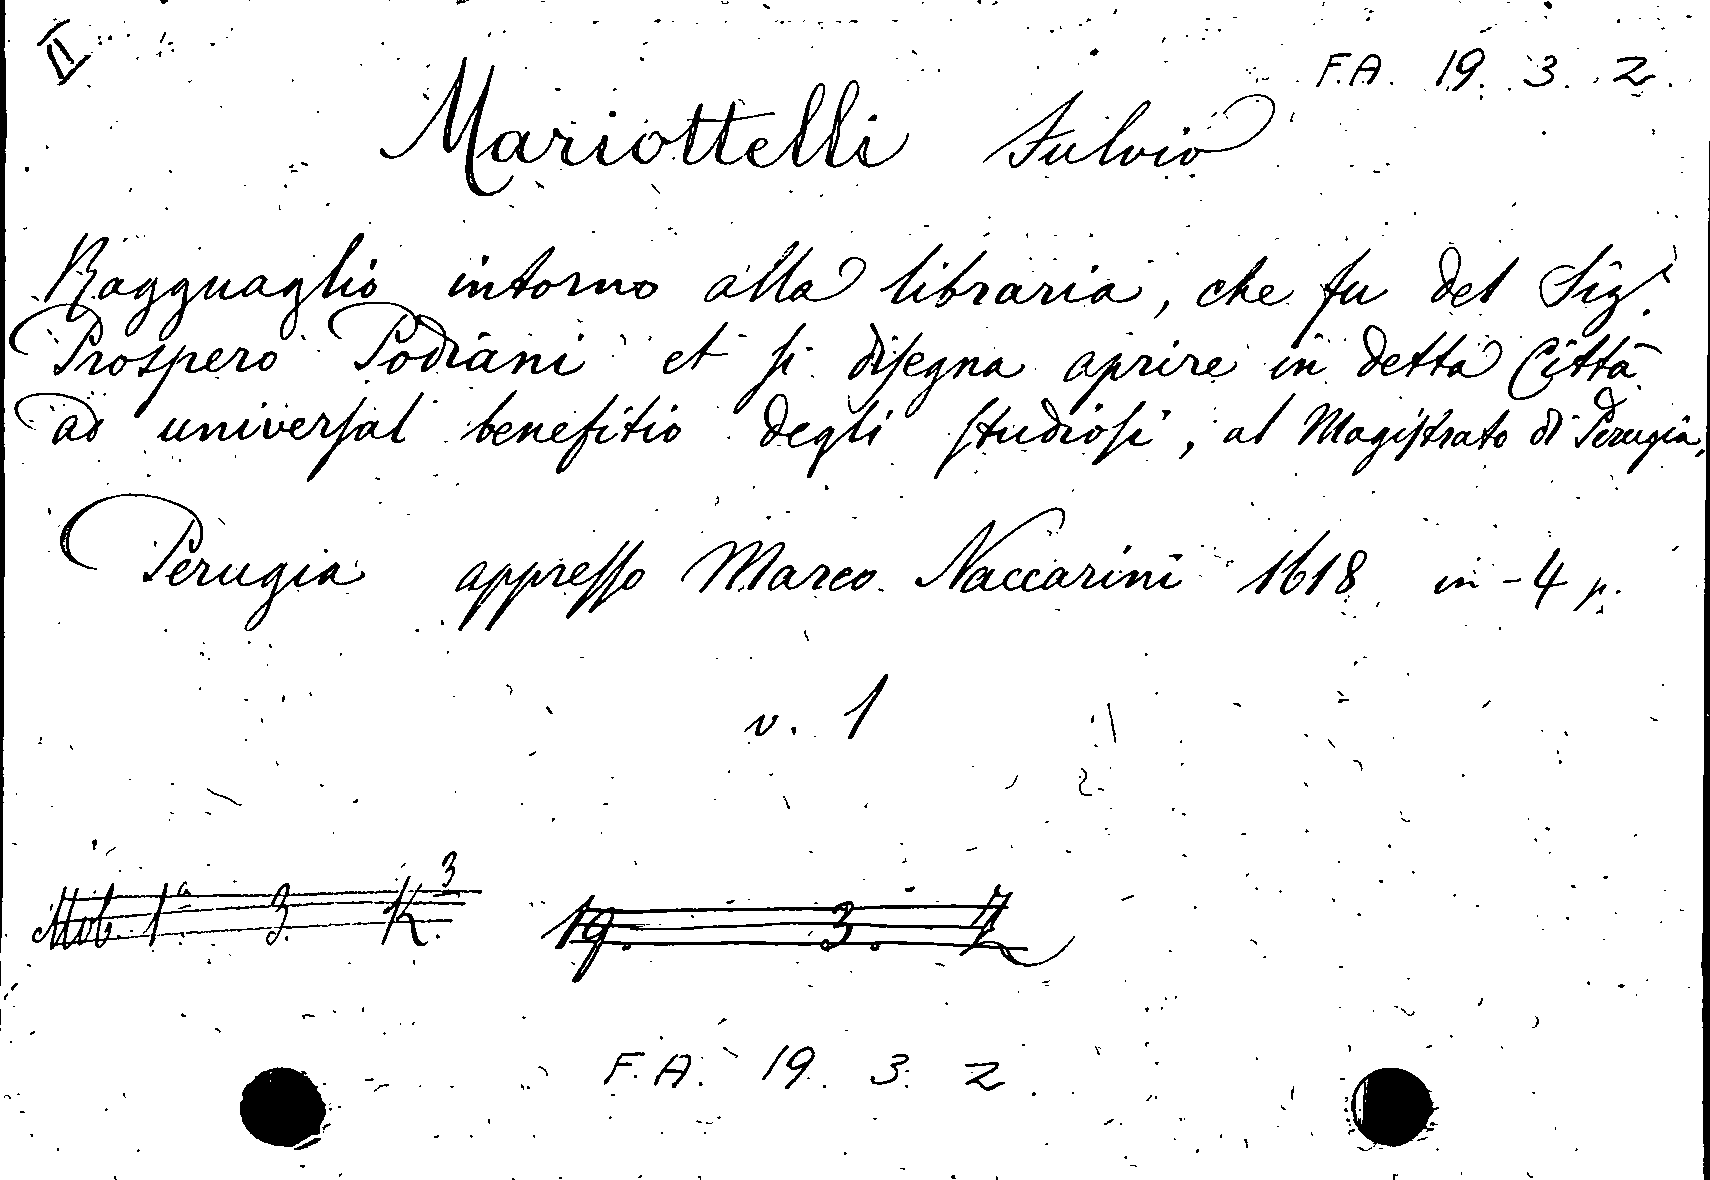 II
F.A. 19. 3. 2.
Mariottelli Fulvio
Ragguaglio intorno alla libraria, che fu del Sig.r
Prospero Podiani et si disegna aprire in detta Città
ad universal benefitio degli studiosi, al Magistrato di Perugia.
Perugia appresso Marco Naccarini 1618 in-4 p.
v. 1
Mob. 1a 3. K.3
19. 3. Z
F.A. 19. 3. 2